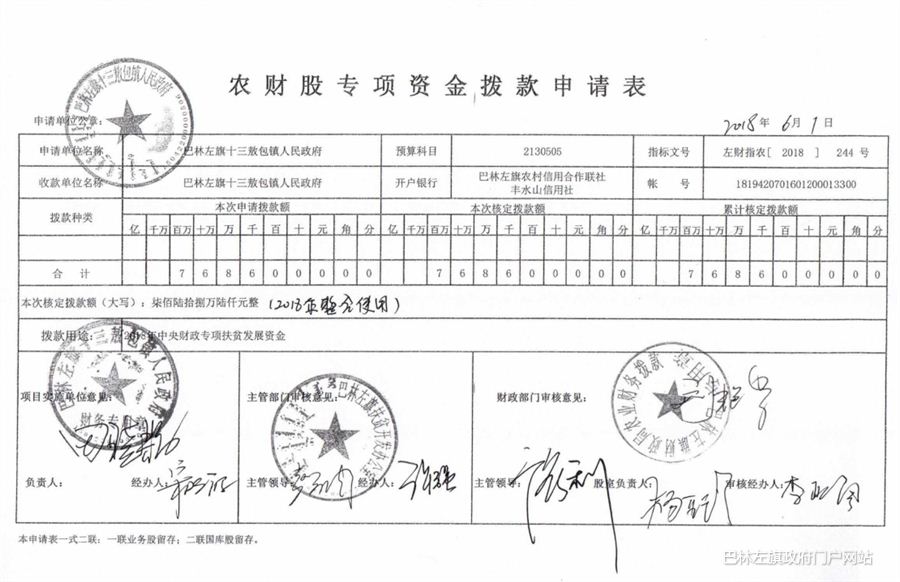 农财股专项资金拨款申请表
申请单位公章：
2018年6月1日
申请单位名称 巴林左旗十三敖包镇人民政府 预算科目 2130505 指标文号 左财指农[ 2018 ] 244 号
收款单位名称 巴林左旗十三敖包镇人民政府 开户银行 巴林左旗农村信用合作联社 丰水山信用社 帐 号 1819420701601200013300
拨款种类 本次申请拨款额 本次核定拨款额 累计核定拨款额
亿 千万 百万 十万 万 千 百 十 元 角 分 亿 千万 百万 十万 万 千 百 十 元 角 分 亿 千万 百万 十万 万 千 百 十 元 角 分
合 计 7 6 8 6 0 0 0 0 0 7 6 8 6 0 0 0 0 0 7 6 8 6 0 0 0 0 0
本次核定拨款额（大写）：柒佰陆拾捌万陆仟元整 (2018年整合使用)
拨款用途： 2018年中央财政专项扶贫发展资金
项目实施单位意见： 主管部门审核意见： 财政部门审核意见：
巴林左旗十三敖包镇人民政府
财务专用章
负责人： 经办人： 主管领导： 经办人： 主管领导： 股室负责人： 审核经办人：
本申请表一式二联：一联业务股留存；二联国库股留存。
巴林左旗政府门户网站